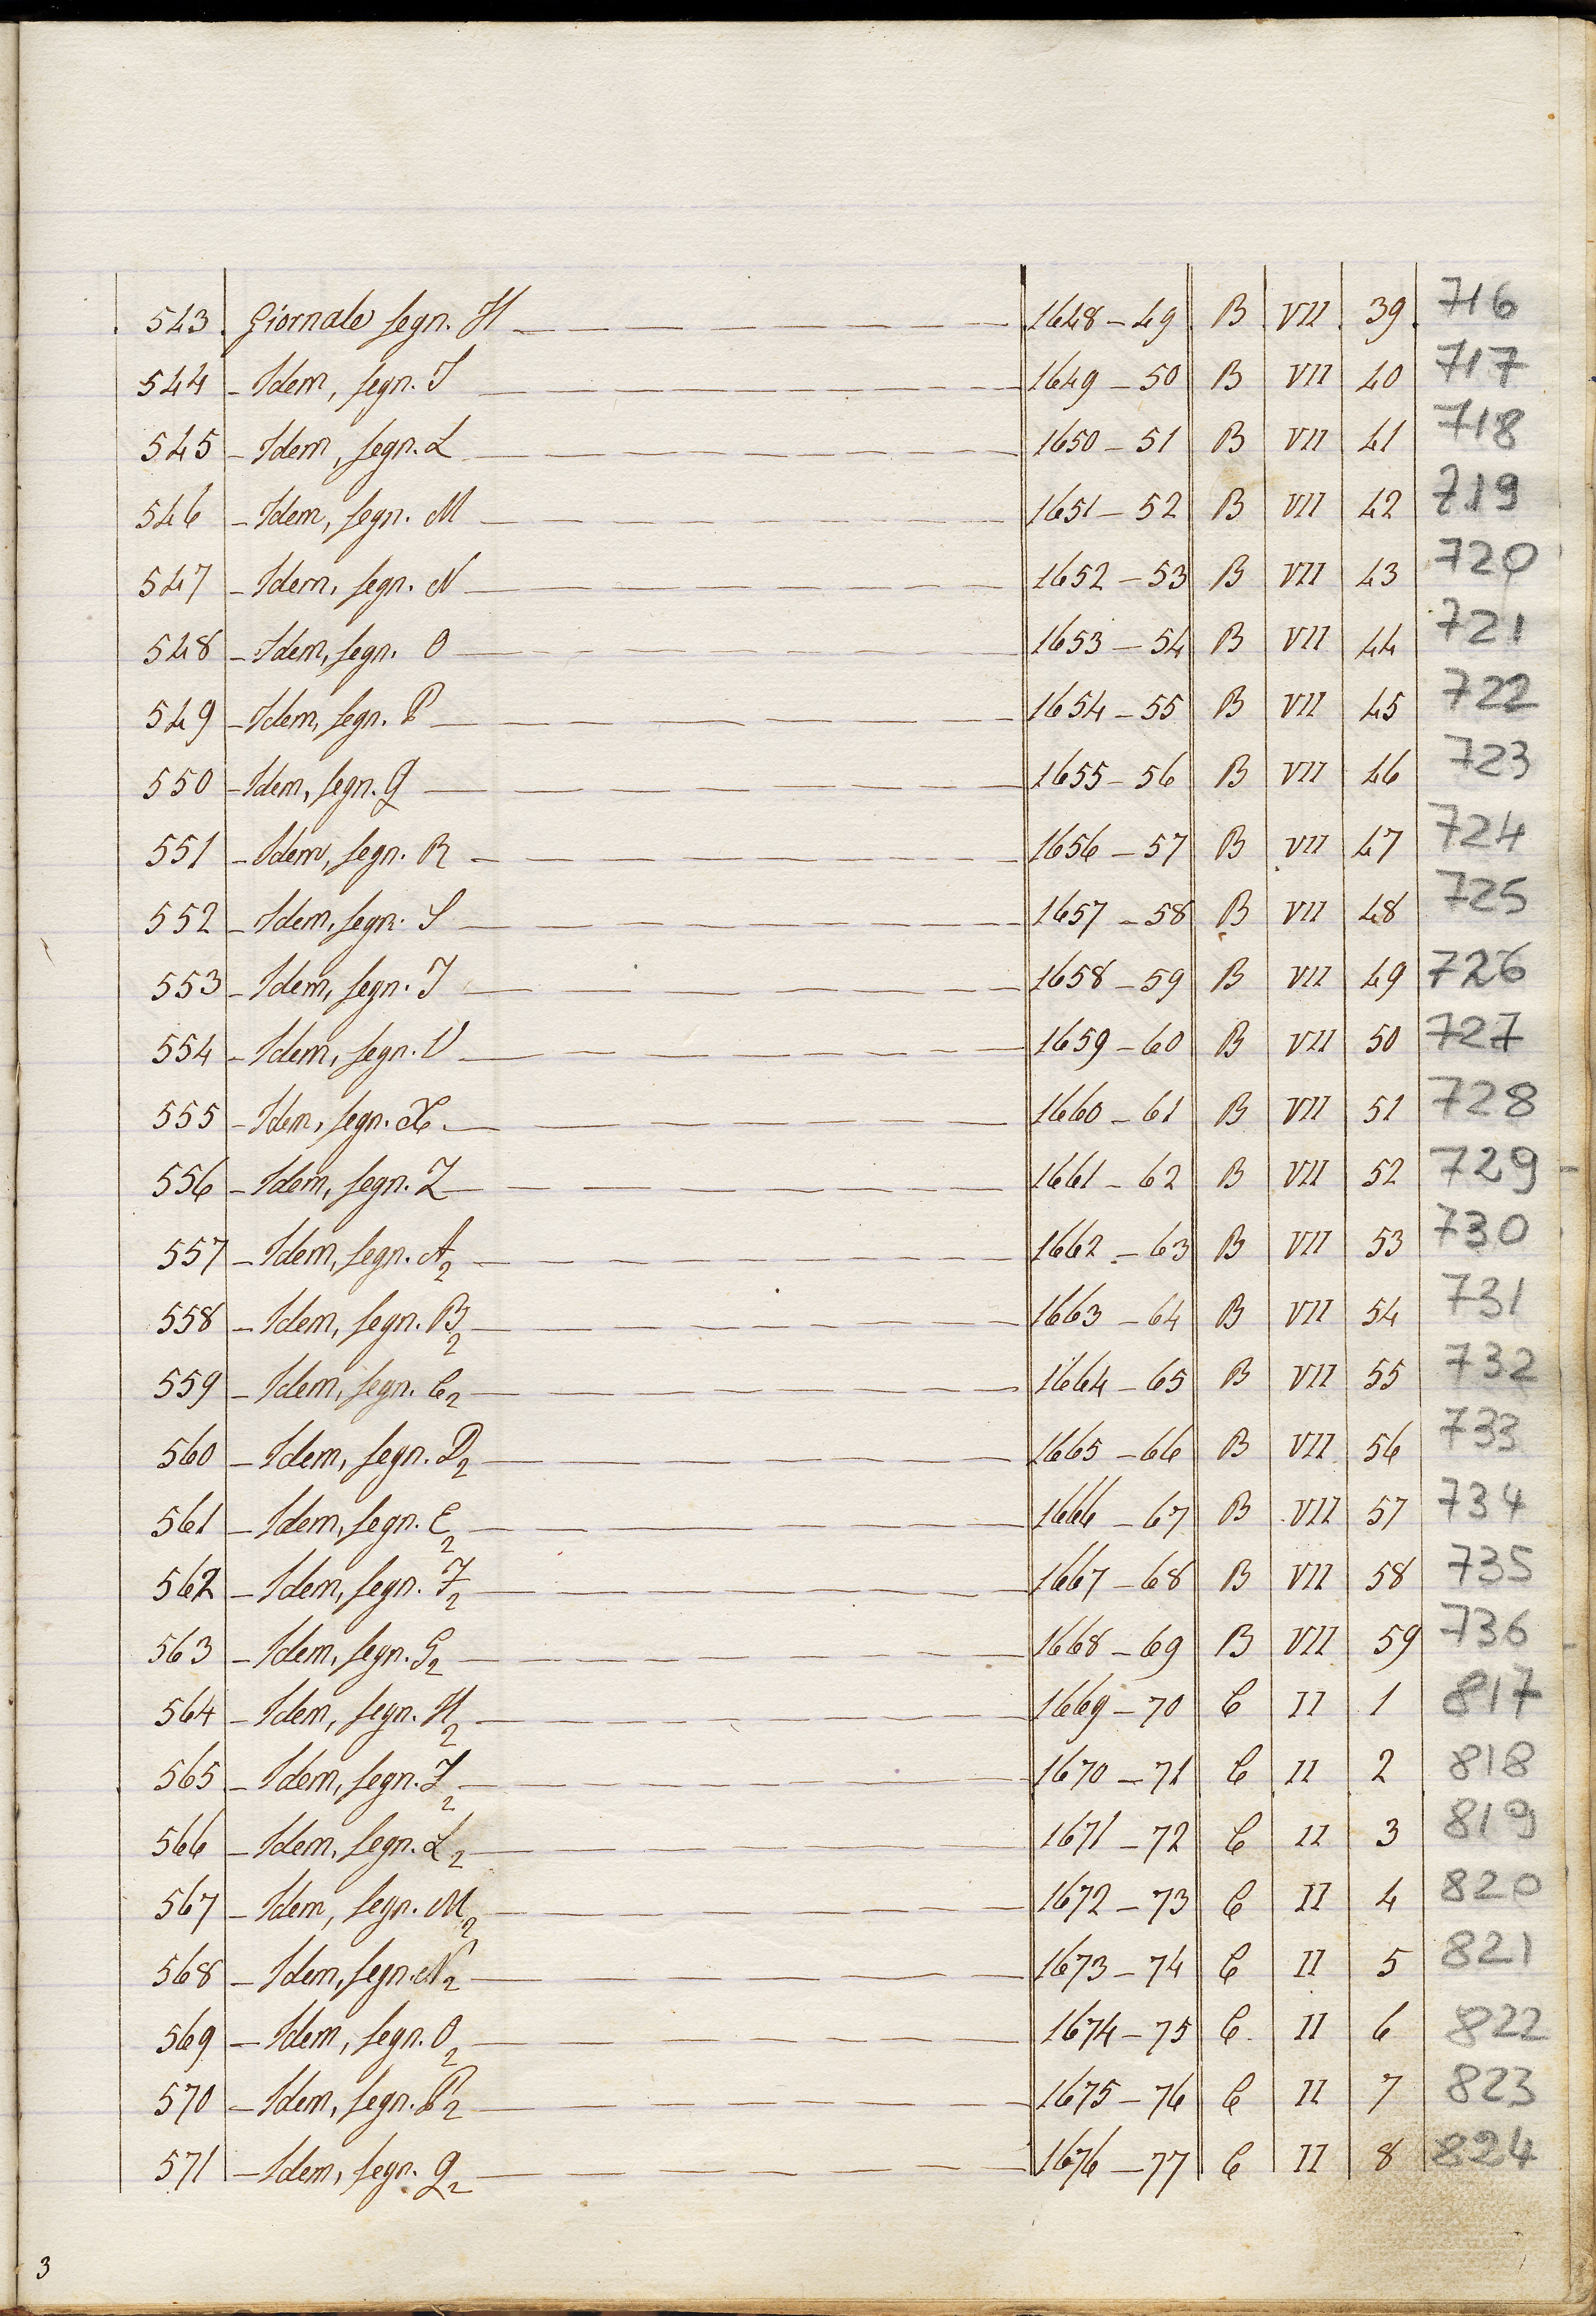 543 Giornale segn. H 1648-49 B VII 39 716
544 - Idem, segn. I 1649-50 B VII 40 717
545 - Idem, segn. L 1650-51 B VII 41 718
546 - Idem, segn. M 1651-52 B VII 42 719
547 - Idem, segn. N 1652-53 B VII 43 720
548 - Idem, segn. O 1653-54 B VII 44 721
549 - Idem, segn. P 1654-55 B VII 45 722
550 - Idem, segn. Q 1655-56 B VII 46 723
551 - Idem, segn. R 1656-57 B VII 47 724
552 - Idem, segn. S 1657-58 B VII 48 725
553 - Idem, segn. T 1658-59 B VII 49 726
554 - Idem, segn. V 1659-60 B VII 50 727
555 - Idem, segn. X 1660-61 B VII 51 728
556 - Idem, segn. Z 1661-62 B VII 52 729
557 - Idem, segn. A2 1662-63 B VII 53 730
558 - Idem, segn. B2 1663-64 B VII 54 731
559 - Idem, segn. C2 1664-65 B VII 55 732
560 - Idem, segn. D2 1665-66 B VII 56 733
561 - Idem, segn. E2 1666-67 B VII 57 734
562 - Idem, segn. F2 1667-68 B VII 58 735
563 - Idem, segn. G2 1668-69 B VII 59 736
564 - Idem, segn. H2 1669-70 C II 1 817
565 - Idem, segn. I2 1670-71 C II 2 818
566 - Idem, segn. L2 1671-72 C II 3 819
567 - Idem, segn. M2 1672-73 C II 4 820
568 - Idem, segn. N2 1673-74 C II 5 821
569 - Idem, segn. O2 1674-75 C II 6 822
570 - Idem, segn. P2 1675-76 C II 7 823
571 - Idem, segn. Q2 1676-77 C II 8 824
3